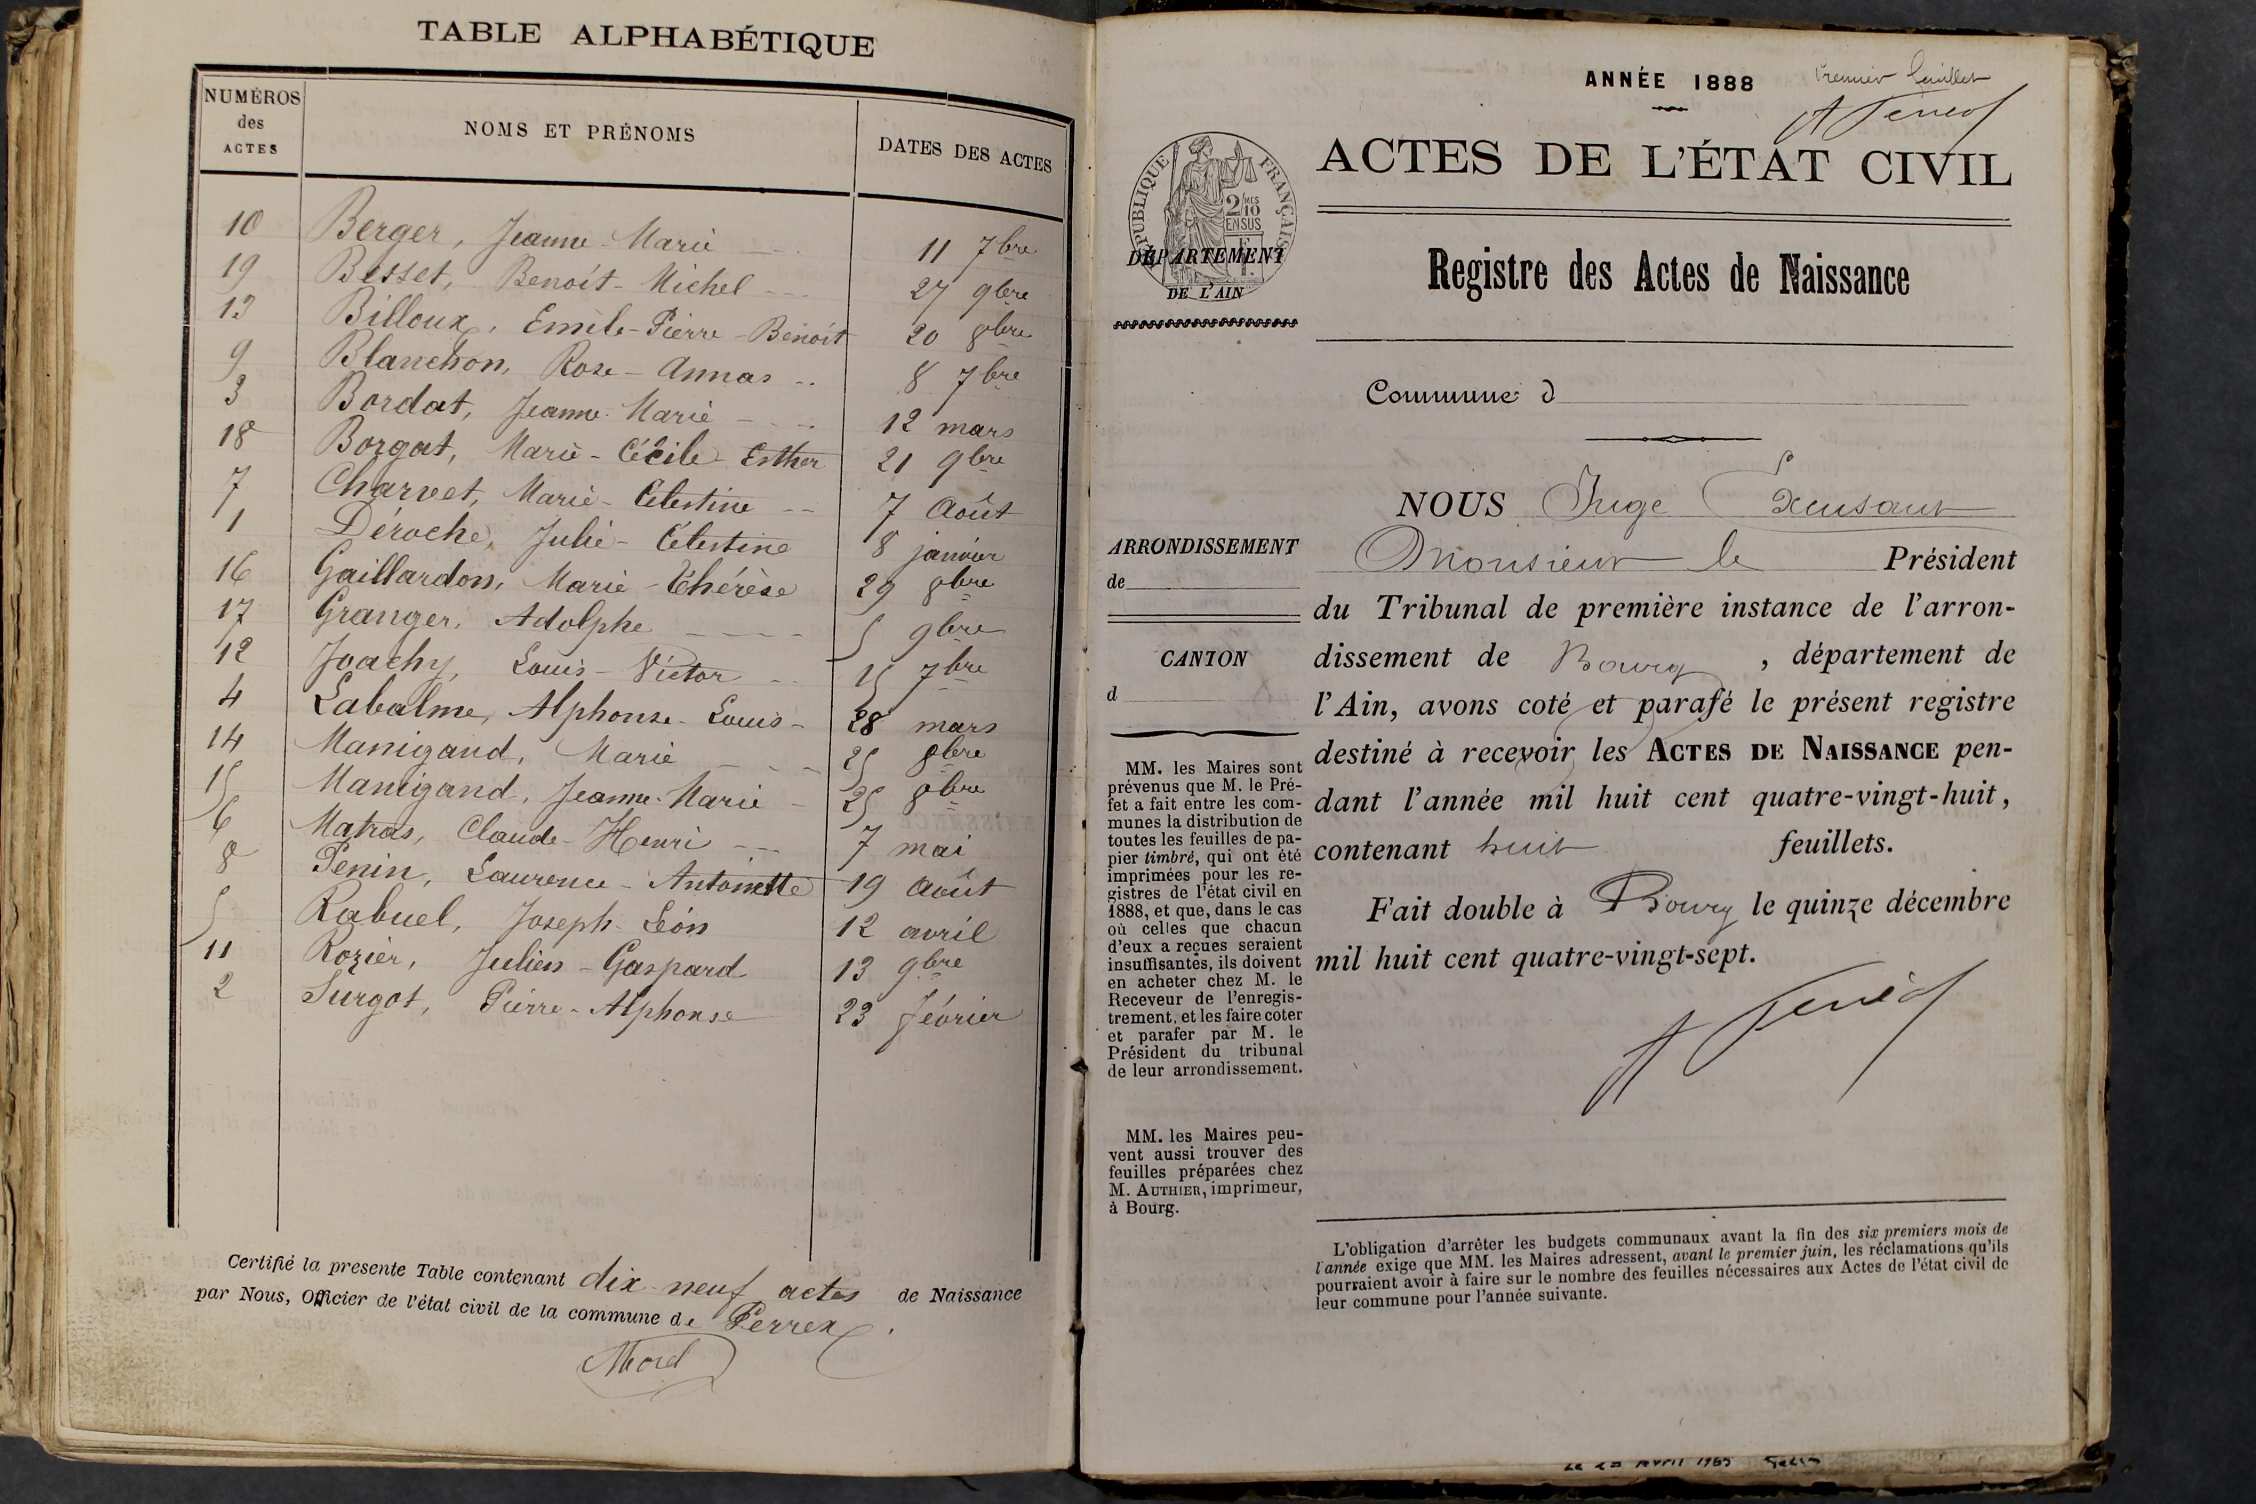 TABLE ALPHABÉTIQUE
NUMÉROS des ACTES
NOMS ET PRÉNOMS
DATES DES ACTES
10 Berger, Jeanne-Marie 11 7bre
19 Besset, Benoît-Michel 27 9bre
13 Billoux, Emile-Pierre-Benoît 20 8bre
9 Blanchon, Rose-Annas 8 7bre
3 Bordat, Jeanne-Marie 12 mars
18 Borgat, Marie-Cécile Esther 21 9bre
7 Charvet, Marie-Célestine 7 Août
1 Déroche, Julie-Célestine 8 janvier
16 Gaillardon, Marie-Thérèse 29 8bre
17 Granger, Adolphe 5 9bre
12 Joachy, Louis-Victor 15 7bre
4 Labalme, Alphonse-Louis 28 mars
14 Manigand, Marie 25 8bre
15 Manigand, Jeanne-Marie 25 8bre
6 Matras, Claude-Henri 7 mai
8 Penin, Laurence-Antoinette 19 Août
5 Rabuel, Joseph-Léon 12 avril
11 Rozier, Julien-Gaspard 13 9bre
2 Surgot, Pierre-Alphonse 23 février
Certifié la presente Table contenant dix-neuf actes de Naissance
par Nous, Officier de l'état civil de la commune de Perrex.
Morel
ANNÉE 1888
Premier feuillet
ACTES DE L'ÉTAT CIVIL
RÉPUBLIQUE FRANÇAISE
2/10 MES
EN SUS
DÉPARTEMENT
DE L'AIN
Registre des Actes de Naissance
Commune d
NOUS Juge Excusant
Monsieur le Président
du Tribunal de première instance de l'arron-
dissement de Bourg, département de
l'Ain, avons coté et parafé le présent registre
destiné à recevoir les ACTES DE NAISSANCE pen-
dant l'année mil huit cent quatre-vingt-huit,
contenant huit feuillets.
Fait double à Bourg le quinze décembre
mil huit cent quatre-vingt-sept.
ARRONDISSEMENT
de
CANTON
d
MM. les Maires sont
prévenus que M. le Pré-
fet a fait entre les com-
munes la distribution de
toutes les feuilles de pa-
pier timbré, qui ont été
imprimées pour les re-
gistres de l'état civil en
1888, et que, dans le cas
où celles que chacun
d'eux a reçues seraient
insuffisantes, ils doivent
en acheter chez M. le
Receveur de l'enregis-
trement, et les faire coter
et parafer par M. le
Président du tribunal
de leur arrondissement.
MM. les Maires peu-
vent aussi trouver des
feuilles préparées chez
M. AUTHIER, imprimeur,
à Bourg.
L'obligation d'arrêter les budgets communaux avant la fin des six premiers mois de
l'année exige que MM. les Maires adressent, avant le premier juin, les réclamations qu'ils
pourraient avoir à faire sur le nombre des feuilles nécessaires aux Actes de l'état civil de
leur commune pour l'année suivante.